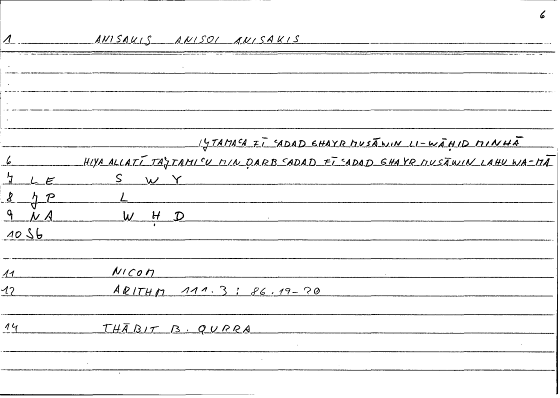 6
1 ANISAKIS ANISOI ANISAKIS
IǦTAMAʿA FĪ ʿADAD GHAYR MUSĀWIN LI-WĀḤID MINHĀ
6 HIYA ALLATĪ TAǦTAMIʿU MIN ḌARB ʿADAD FĪ ʿADAD GHAYR MUSĀWIN LAHU WA-MĀ
7 L E S W Y
8 J P L
9 N A W Ḥ D
10 Sb
11 NICOM
12 ARITHM 111.3 : 86.19-20
14 THĀBIT B. QURRA